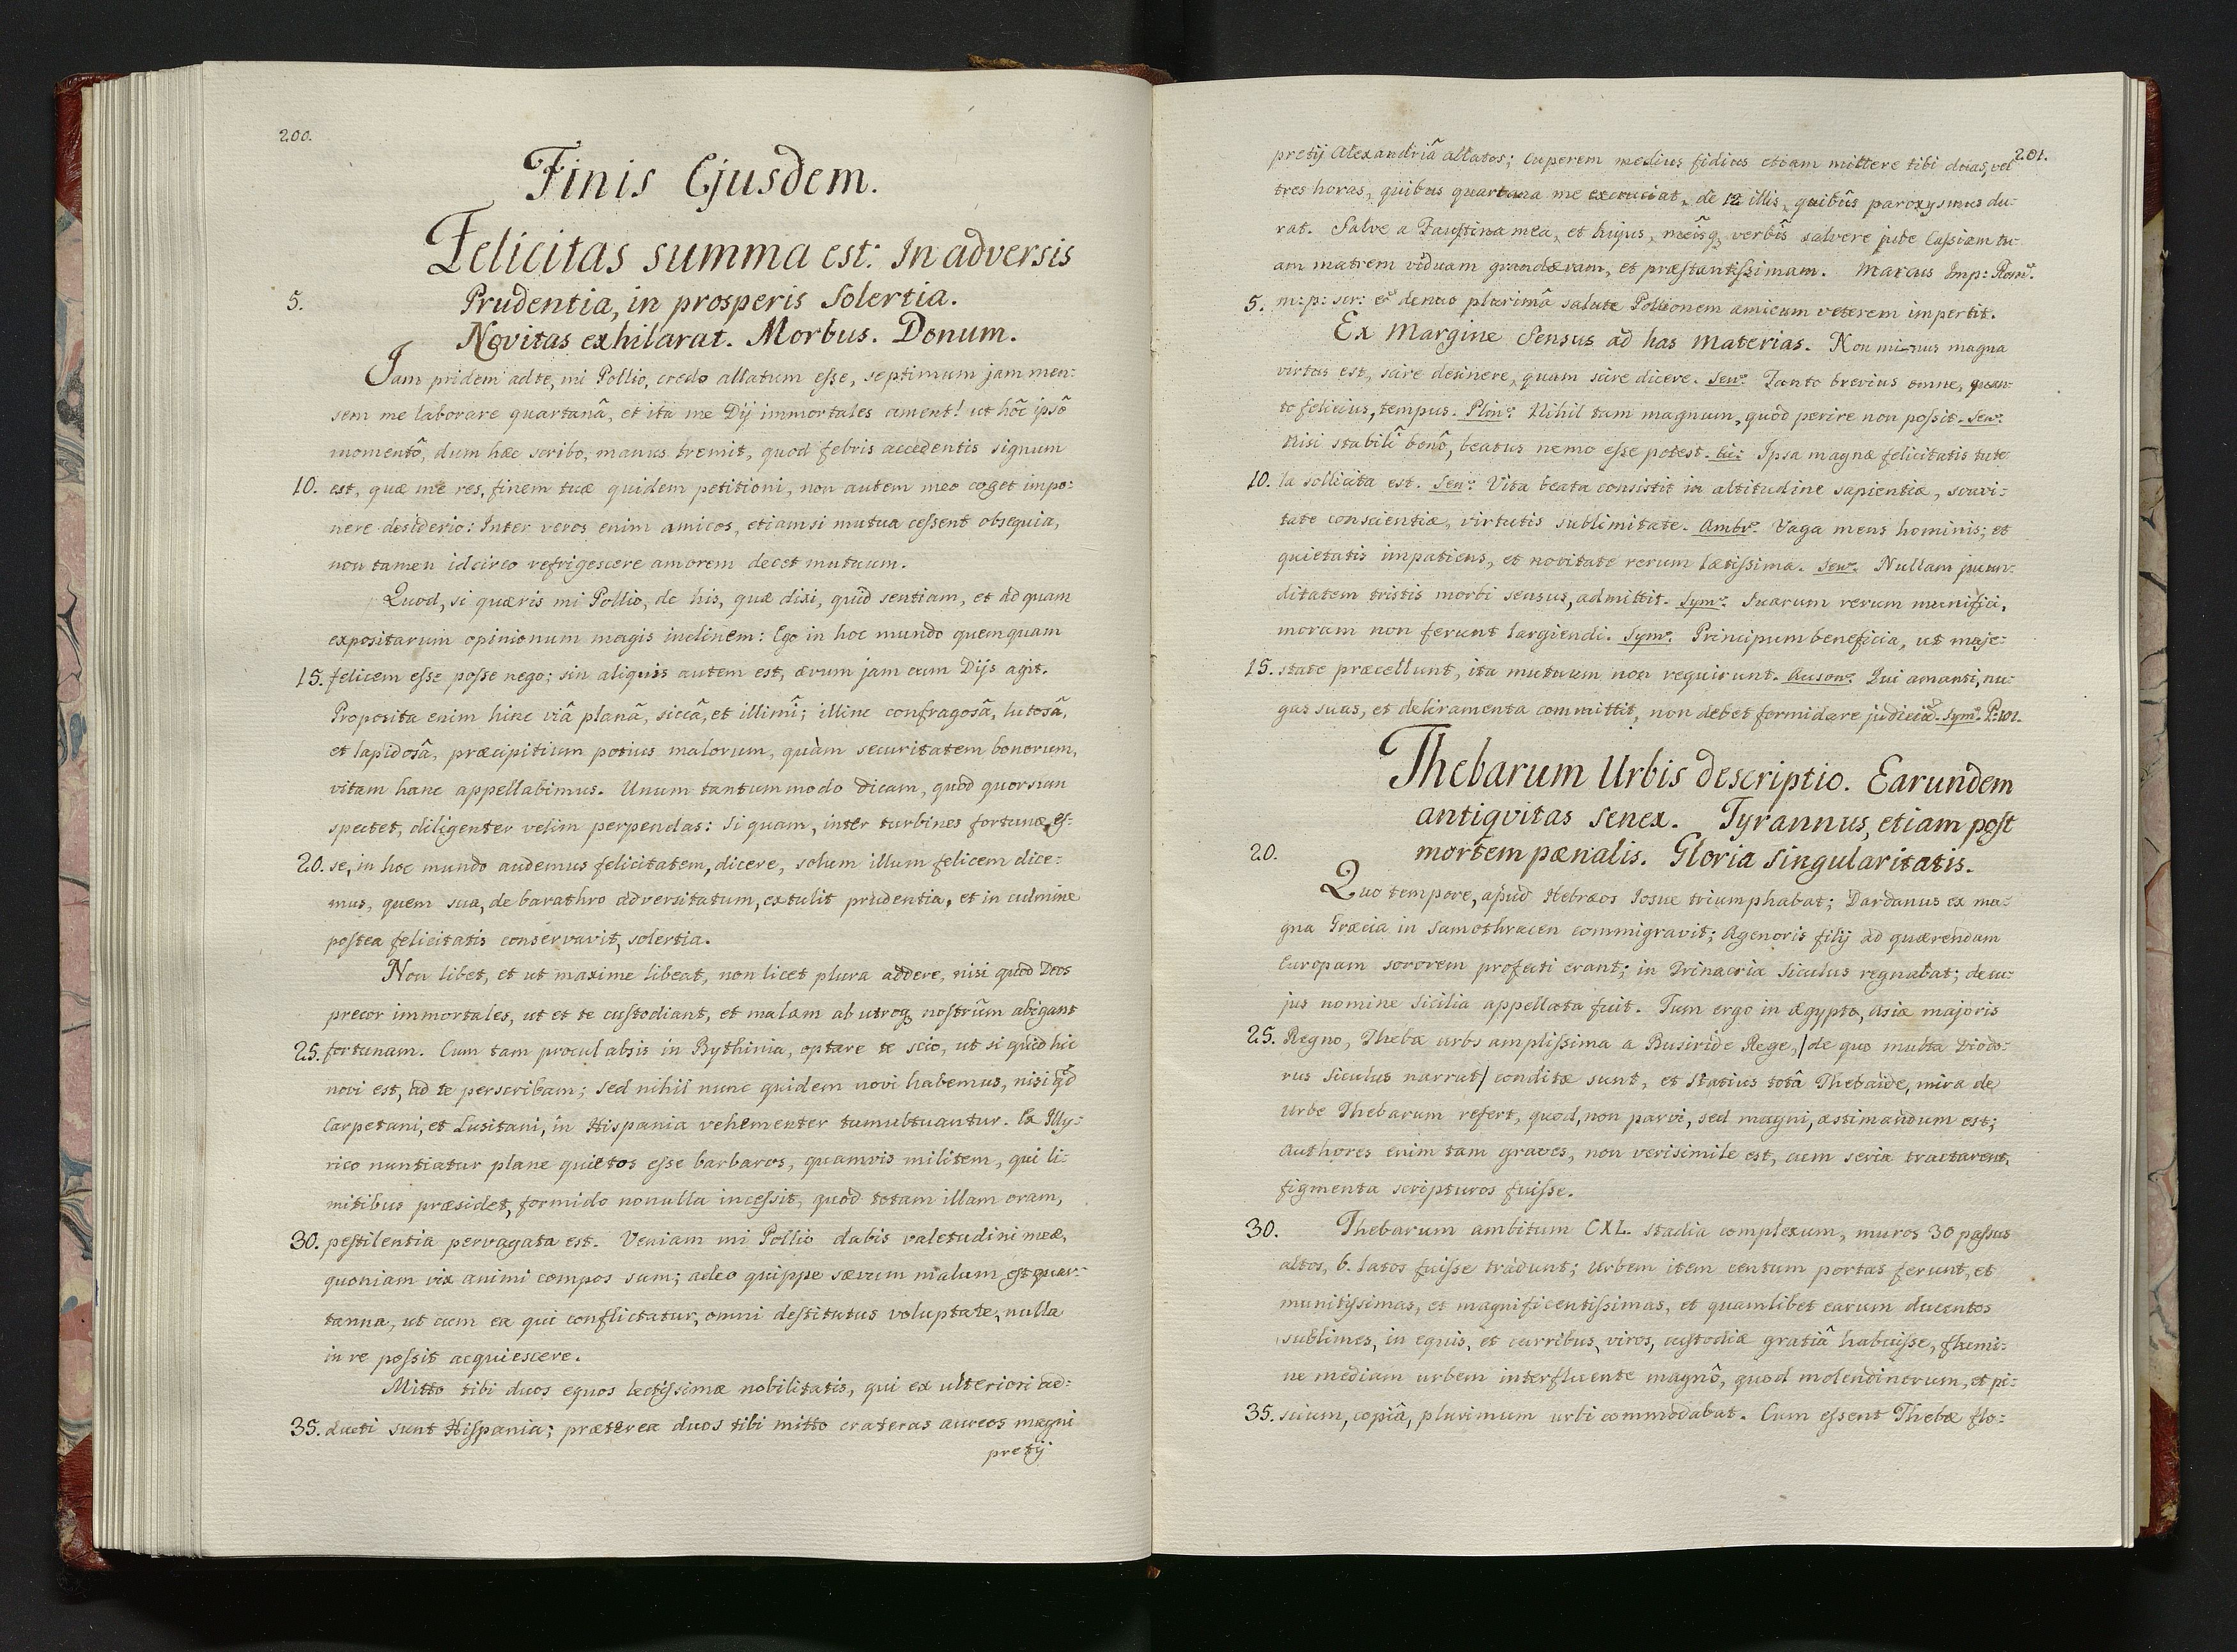 200.
Finis Ejusdem.
Felicitas summa est: In adversis
5. Prudentia, in prosperis Solertia.
Novitas exhilarat. Morbus. Donum.
Jam pridem ad te, mi Pollio, credo allatum eſse, septimum jam men:
sem me laborare quartanâ, et ita me Dij immortales ament! ut hôc ipsô
momentô, dum hæc scribo, manus tremit, quod febris accedentis signum
10. est, quæ me res, finem tuæ quidem petitioni, non autem meo coget impo:
nere desiderio: Inter veros enim amicos, etiamsi mutua ceſsent obsequia,
non tamen idcirco refrigescere amorem decet mutuum.
Quod, si quæris mi Pollio, de his, quæ dixi, quid sentiam, et ad quam
expositarum opinionum magis inclinem: Ego in hoc mundo quemquam
15. felicem eſse poſse nego; sin aliquis autem est, ævum jam cum Dijs agit.
Proposita enim hinc viâ planâ, siccâ, et illimi; illinc confragosâ, lutosâ,
et lapidosâ, præcipitium potius malorum, quàm securitatem bonorum,
vitam hanc appellabimus. Unum tantummodo dicam, quòd quorsum
spectet, diligenter velim perpendas: Si quam, inter turbines fortunæ, eſ:
20. se, in hoc mundo audemus felicitatem, dicere, solum illum felicem dice:
mus, quem sua, de barathro adversitatum, extulit prudentia, et in culmine
poſtea felicitatis conservavit, solertia.
Non libet, et ut maxime libeat, non licet plura addere, nisi quòd Deos
precor immortales, ut et te cuſtodiant, et malam ab utroq; noſtrûm abigant
25. fortunam. Cum tam procul absis in Bythinia, optare te scio, ut si quid hic
novi est, ad te perscribam; sed nihil nunc quidem novi habemus, nisi qd
Carpetani, et Lusitani, in Hispania vehementer tumultuantur. Ex Illy:
rico nuntiatur plane quietos eſse barbaros, quamvis militem, qui li:
mitibus præsidet, formido nonulla inceſsit, quod totam illam oram,
30. peſtilentia pervagata est. Veniam mi Pollio dabis valetudini meæ,
quoniam vix animi compos sum; adeo quippe sævum malum est quar:
tanna, ut cum ea qui conflictatur, omni deſtitutus voluptate, nulla
in re poſsit acquiescere.
Mitto tibi duos equos lectiſsimæ nobilitatis, qui ex ulteriori ad:
35. ducti sunt Hiſpania; præterea duos tibi mitto crateras aureos magni
pretij
201.
pretij Alexandriâ allatos; Cuperem medius fidius etiam mittere tibi duas, vel
tres horas, quibus quartana me excruciat, de 12 illis, quibus paroxysmus du:
rat. Salve a Fauſtina mea, et hujus, meisq; verbis salvere jube Caſsiam tu:
am matrem viduam grandævam, et præſtantiſsimam. Marcus Imp: Romꝰ.
5. m: p: scr: et denuo plurimâ salute Pollionem amicum veterem impertit.
Ex Margine Sensus ad has Materias. Non minus magna
virtus est, scire desinere, quam scire dicere. Senꝰ. Tanto brevius omne, quan:
to felicius, tempus. Plinꝰ. Nihil tam magnum, quòd perire non poſsit. Senꝰ.
Nisi stabili bonô, beatus nemo eſse potest. Cic: Ipsa magnæ felicitatis tute:
10. la sollicita est. Senꝰ. Vita beata consistit in altitudine sapientiæ, suavi:
tate conscientiæ, virtutis sublimitate. Ambrꝰ. Vaga mens hominis; et
quietatis impatiens, et novitate rerum lætiſsima. Senꝰ. Nullam jucun:
ditatem tristis morbi sensus, admittit. Symꝰ. Suarum rerum munifici,
moram non ferunt largiendi. Symꝰ. Principum beneficia, ut maje:
15. state præcellunt, ita mutuum non requirunt. Ausonꝰ. Qui amanti, nu:
gas suas, et deliramenta committit, non debet formidare judiciũ. Symꝰ. P: 101.
Thebarum Urbis descriptio. Earundem
antiqvitas senex. Tyrannus, etiam poſt
20. mortem pænalis. Gloria Singularitatis.
Quo tempore, apud Hebræos Josue triumphabat; Dardanus ex ma:
gna Græcia in Samothracen commigravit; Agenoris filij ad quærendam
Europam sororem profecti erant; in Trinacria Siculus regnabat; de cu:
jus nomine Sicilia appellata fuit. Tum ergo in Ægypto, Asiæ majoris
25. Regno, Thebæ urbs ampliſsima a Busiride Rege, /de quo multa Diodo:
rus Siculus narrat/ conditæ sunt, et Statius totâ Thebaide, mira de
Urbe Thebarum refert, quod, non parvi, sed magni, æstimandum est;
Authores enim tam graves, non verisimile est, cum seria tractarent,
figmenta scripturos fuiſse.
30. Thebarum ambitum CXL. stadia complexum, muros 30 paſsus
altos, 6. latos fuiſse tradunt; Urbem item centum portas ferunt, et
munitiſsimas, et magnificentiſsimas, et quamlibet earum ducentos
sublimes, in equis, et curribus, viros, cuſtodiæ gratiâ habuiſse, flumi:
ne mediam urbem interfluente magnô, quod molendinorum, et pi:
35. scium, copiâ, plurimum urbi commodabat. Cum eſsent Thebæ flo: